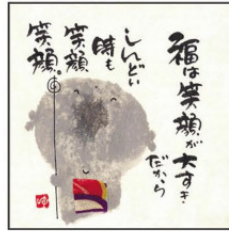 福は笑顔が大すき
だから
しんどい
時も
笑顔
笑顔。